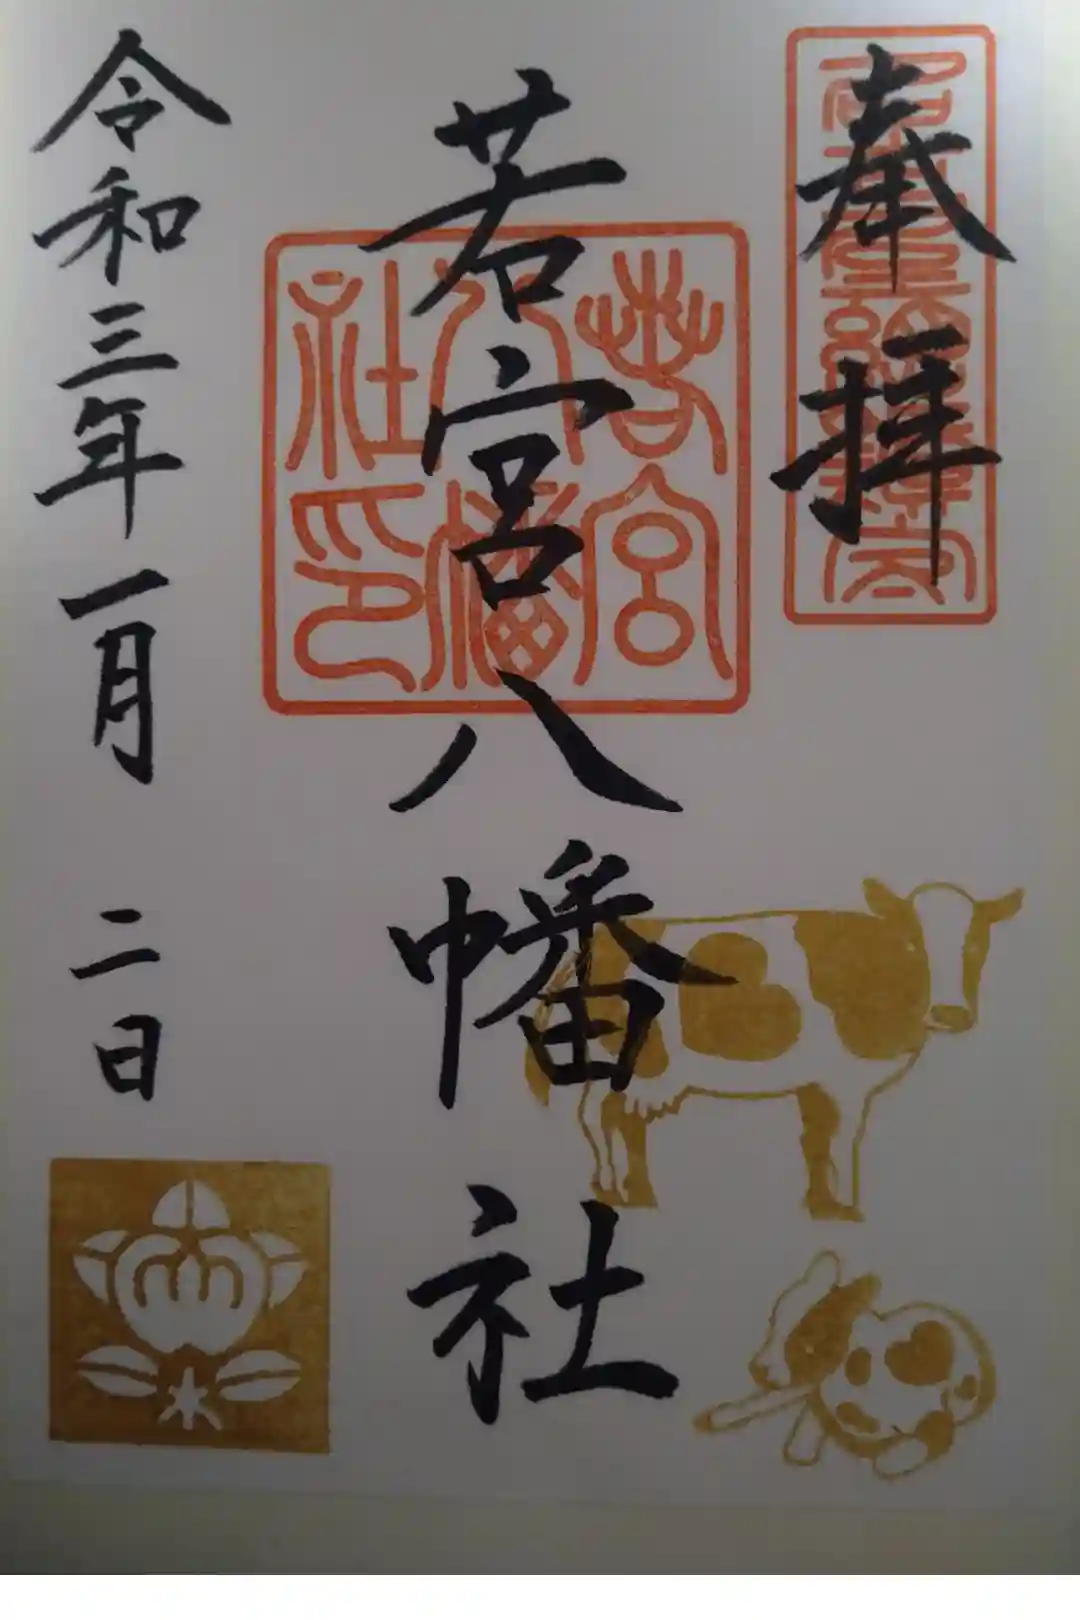 奉拝
若宮八幡社
若宮八幡社印
令和三年一月二日